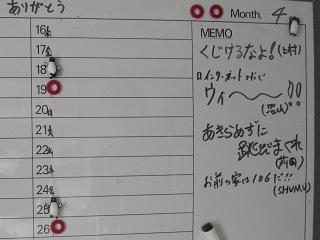 ありがとう
Month. 4
MEMO
16
17
18
19
20
21
22
23
24
25
26
くじけるなよ！(上村)
インターネットカドで
ウィ〜〜〜!!
あきらめずに
跳びまくれ
お前の家は106だ!!
(SHUMU)